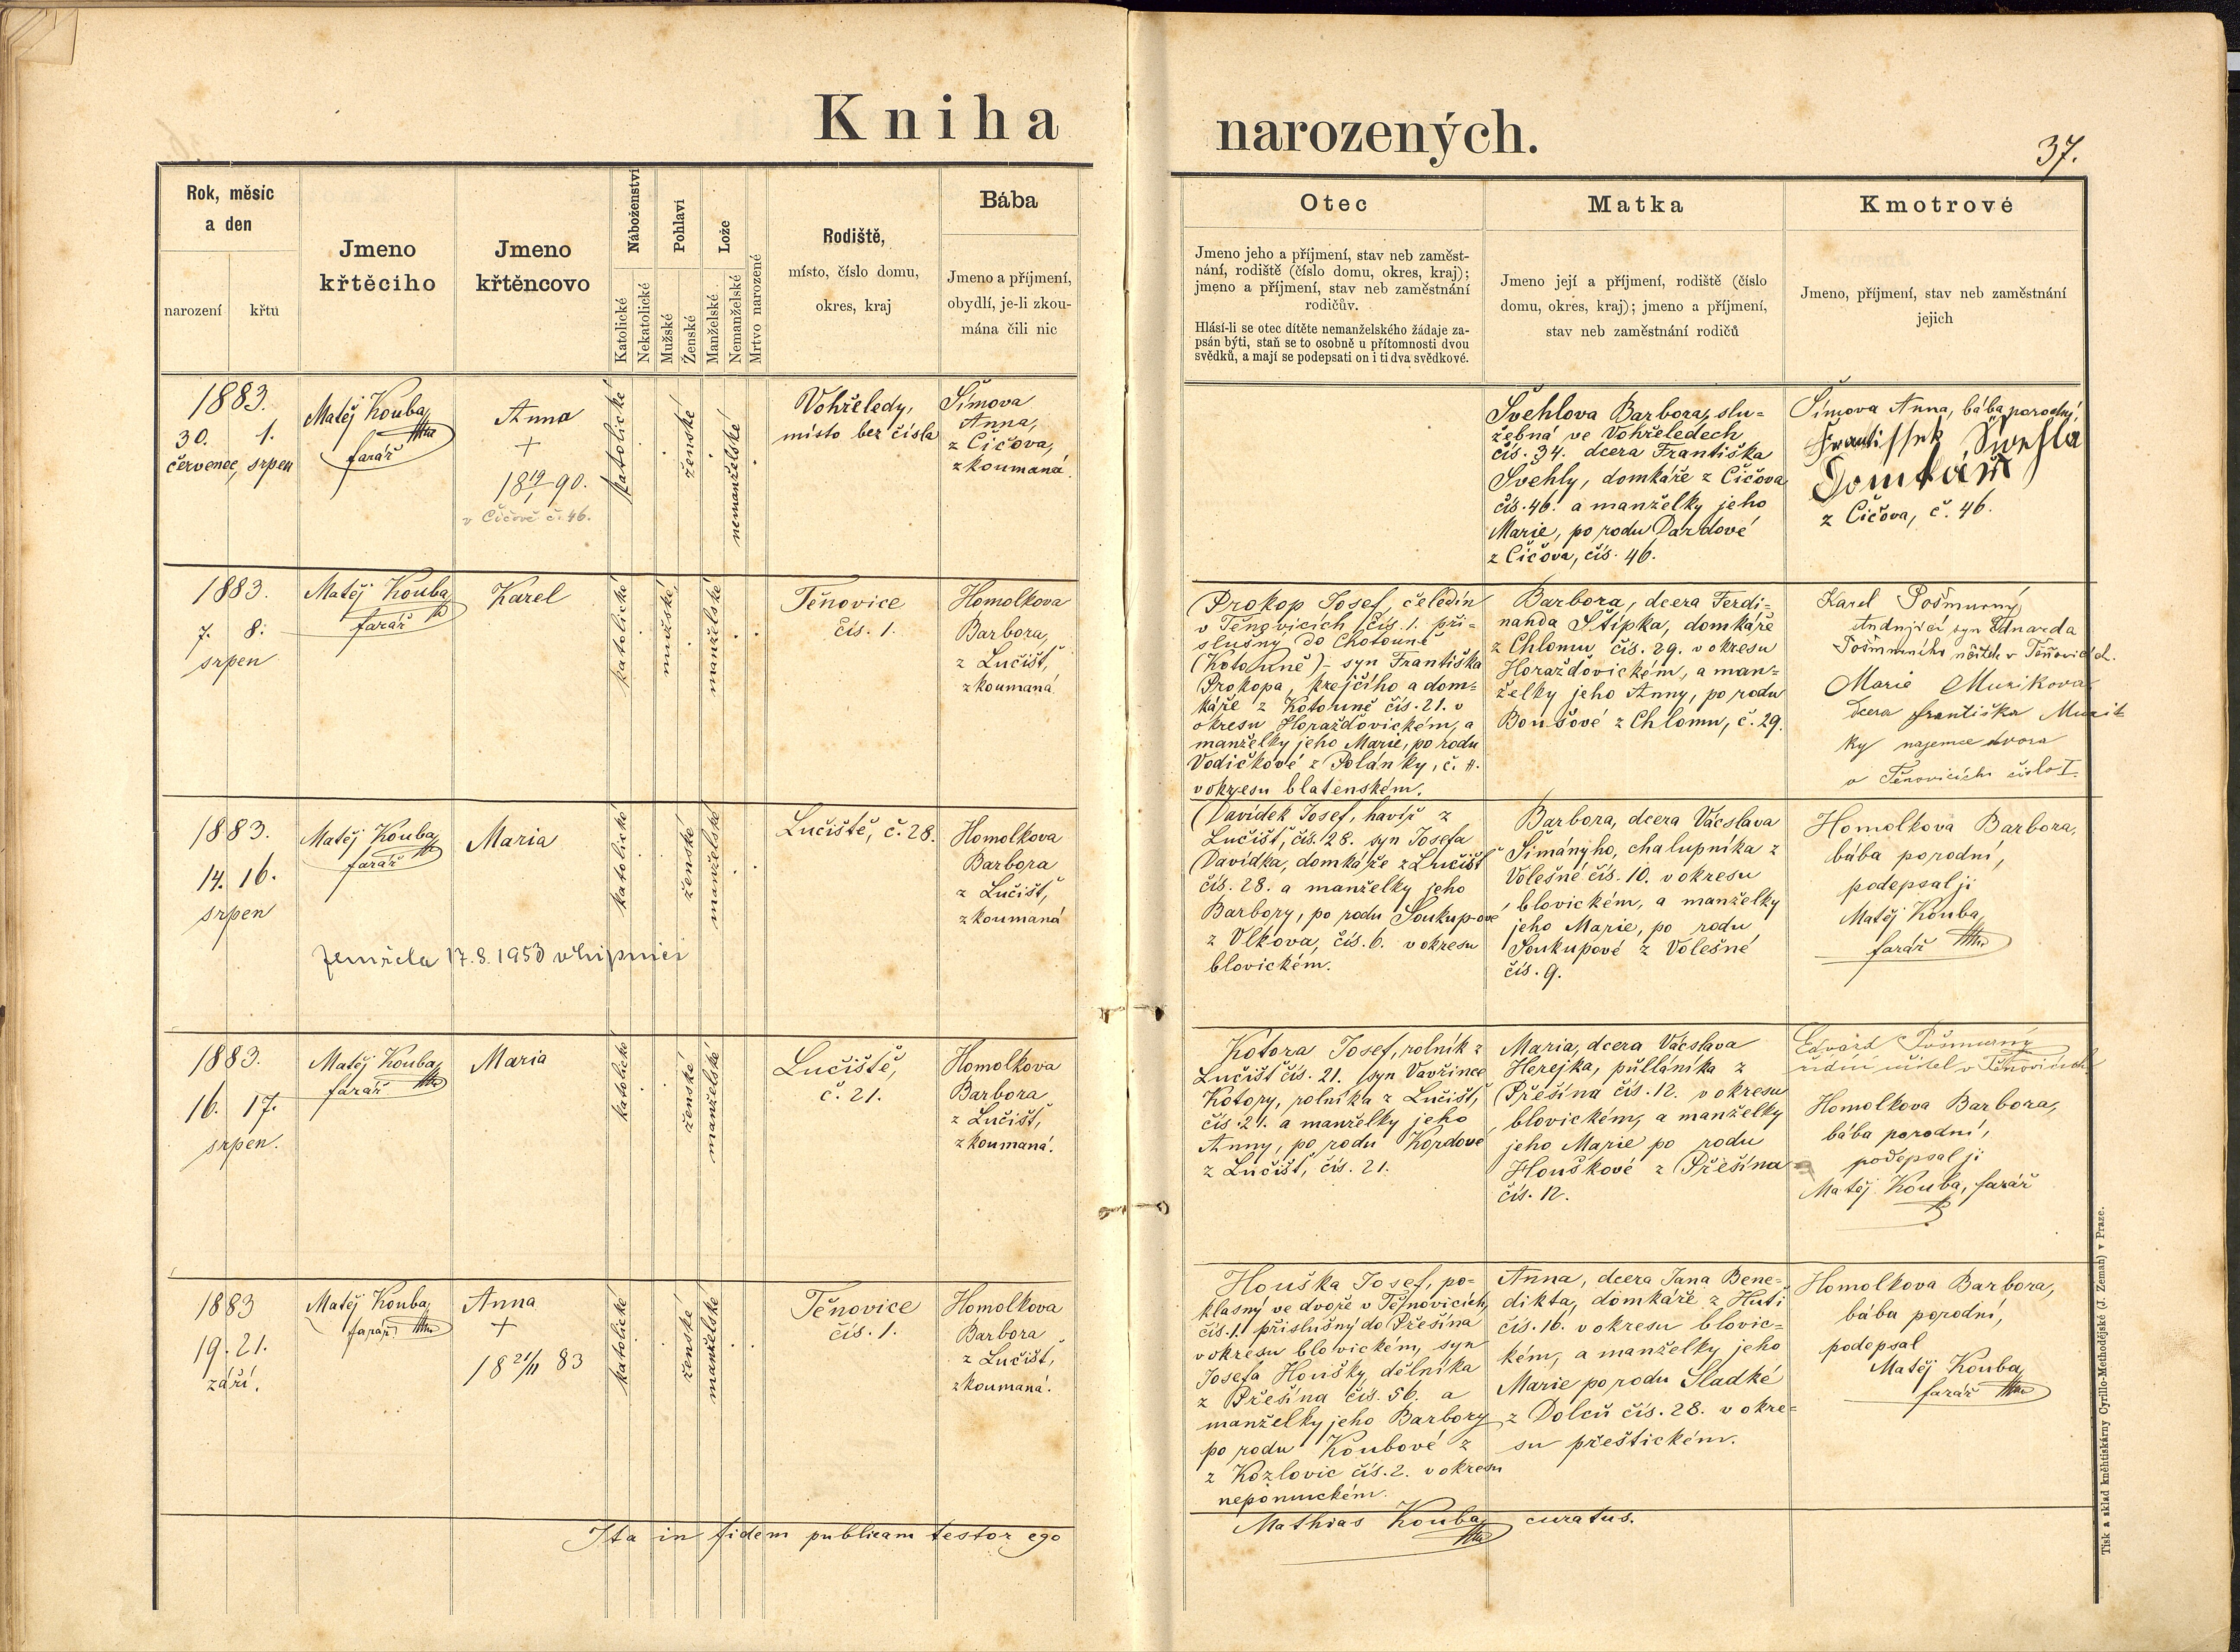 Kniha narozených.
37.
Rok, měsíc
a den
narození
křtu
Jmeno
křtěciho
Jmeno
křtěncovo
Náboženství
Katolické
Nekatolické
Pohlaví
Mužské
Ženské
Lože
Manželské
Nemanželské
Mrtvo narozené
Rodiště,
místo, číslo domu,
okres, kraj
Bába
Jmeno a příjmení,
obydlí, je-li zkou-
mána čili nic
Otec
Jmeno jeho a příjmení, stav neb zaměst-
nání, rodiště (číslo domu, okres, kraj);
jmeno a příjmení, stav neb zaměstnání
rodičův.
Hlásí-li se otec dítěte nemanželského žádaje za-
psán býti, staň se to osobně u přítomnosti dvou
svědků, a mají se podepsati on i ti dva svědkové.
Matka
Jmeno její a příjmení, rodiště (číslo
domu, okres, kraj); jmeno a příjmení,
stav neb zaměstnání rodičů
Kmotrové
Jmeno, příjmení, stav neb zaměstnání
jejich
1883.
30. 1.
červenec, srpen
Matěj Kouba
farář
Anna
+
18 19/1 90.
v Čičově č. 46.
katolické
ženské
nemanželské
Vohřeledy,
místo bez čísla
Šímova
Anna,
z Čičova,
zkoumaná
Švehlova Barbora, slu-
žebná ve Vohřeledech
čís. 34. dcera Františka
Švehly, domkáře z Čičova
čís. 46. a manželky jeho
Marie, po rodu Dardové
z Čičova, čís. 46.
Šímova Anna, bába porodní,
Frantissek Swehla
Domkář
z Čičova, č. 46.
1883.
7. 8.
srpen
Matěj Kouba
farář
Karel
katolické
mužské
manželské
Těnovice
čís. 1.
Homolkova
Barbora,
z Lučišť,
zkoumaná
Prokop Josef, čeledín
v Těnovicích čís. 1. pří-
slušný do Chotouně
(Kotouně) syn Františka
Prokopa, krejčího a dom-
káře z Kotouně čís. 21. v
okresu Horažďovickém, a
manželky jeho Marie, po rodu
Vodičkové z Polánky, č. 4.
v okresu blatenském.
Barbora, dcera Ferdi-
nanda Štípka, domkáře
z Chlomu, čís. 29. v okresu
Horažďovickém, a man-
želky jeho Anny, po rodu
Boušové z Chlomu, č. 29.
Karel Pošmurný
studující syn Eduarda
Pošmurného učitele v Těnovicích.
Marie Muzikova
dcera Františka Muzik
ky najemce dvora
v Těnovicích číslo I.
1883.
14. 16.
srpen
Matěj Kouba
farář
Maria
Zemřela 17.8.1953
katolické
ženské
manželské
Lučiště, č. 28.
Homolkova
Barbora
z Lučišť,
zkoumaná
Davídek Josef, havíř z
Lučišť, čís. 28. syn Josefa
Davídka, domkáře z Lučišť
čís. 28. a manželky jeho
Barbory, po rodu Soukupové
z Vlkova, čís. 6. v okresu
blovickém.
Barbora, dcera Václava
Šimányho, chalupníka z
Volešné čís. 10. v okresu
blovickém, a manželky
jeho Marie, po rodu
Soukupové z Volešné
čís. 9.
Homolkova Barbora,
bába porodní,
podepsal ji
Matěj Kouba,
farář
1883.
16. 17.
srpen.
Matěj Kouba,
farář
Maria
katolické
ženské
manželské
Lučiště,
č. 21.
Homolkova
Barbora
z Lučišť,
zkoumaná.
Kotora Josef, rolník z
Lučišť čís. 21. syn Vavřince
Kotory, rolníka z Lučišť,
čís. 21. a manželky jeho
Anny, po rodu Kordové
z Lučišť, čís. 21.
Maria, dcera Václava
Herejka, půlláníka z
Přešína čís. 12. v okresu
blovickém, a manželky
jeho Marie po rodu
Houškové z Přešína
čís. 12.
Edvard Pošmurný
řídící učitel v Těnovicích
Homolkova Barbora,
bába porodní,
podepsal ji
Matěj Kouba, farář
1883
19. 21.
září.
Matěj Kouba,
farář
Anna
+
18 21/11 83
katolické
ženské
manželské
Těnovice
čís. 1.
Homolkova
Barbora
z Lučišť,
zkoumaná.
Houška Josef, po-
klasný ve dvoře v Těnovicích,
čís. 1. příslušný do Přešína
v okresu blovickém, syn
Josefa Houšky, dělníka
z Přešína čís. 56. a
manželky jeho Barbory
po rodu Koubové z
z Kozlovic čís. 2. v okresu
nepomuckém.
Anna, dcera Jana Bene-
dikta, domkáře z Huti
čís. 16. v okresu blovic-
kém, a manželky jeho
Marie po rodu Sladké
z Dolců čís. 28. v okre-
su přeštickém.
Homolkova Barbora,
bába porodní,
podepsal
Matěj Kouba,
farář
Ita in fidem publicam testor ego
Mathias Kouba, curatus.
Tisk a sklad kněhtiskárny Cyrillo-Methodějské (J. Zeman) v Praze.